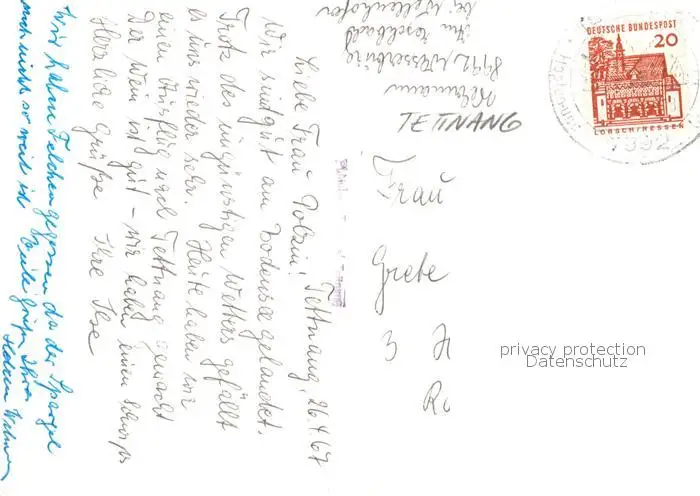 Tettnang, 26.4.67
Liebe Frau
Wir sind gut am Bodensee gelandet.
Trotz des ungünstigen Wetters gefällt
es uns wieder sehr. Heute haben wir
einen Ausflug nach Tettnang gemacht
Der Wein ist gut - wir haben einen Schwips
Herzliche Grüße Ihre Ilse
Wir haben Felchen gegessen da der Spargel
noch nicht so weit ist. Viele Grüße Ihre
8992 Wasserburg
bei
TETTNANG
DEUTSCHE BUNDESPOST
20
LORSCH/HESSEN
7992
Frau
Grete
3 H
privacy protection
Datenschutz